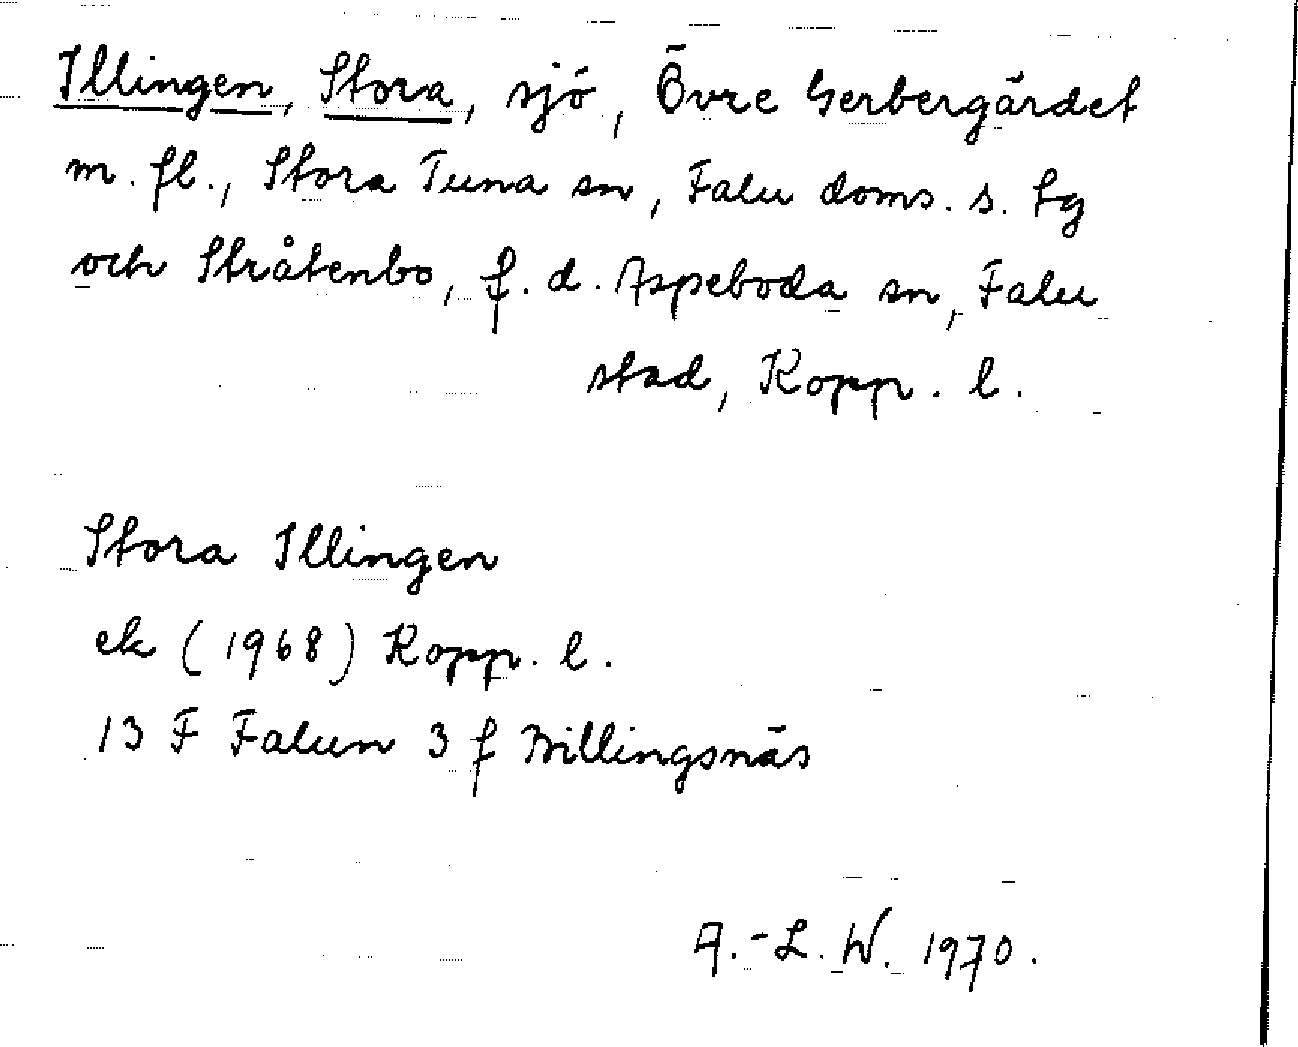 Illingen, Stora, sjö, Övre Gerbergärdet
m. fl., Stora Tuna sn, Falu doms. s. tg
och Stråtenbo, f. d. Aspeboda sn, Falu
stad, Kopp. l.
Stora Illingen
ek (1968) Kopp. l.
13 F Falun 3 f Billingsnäs
A.-L. W. 1970.